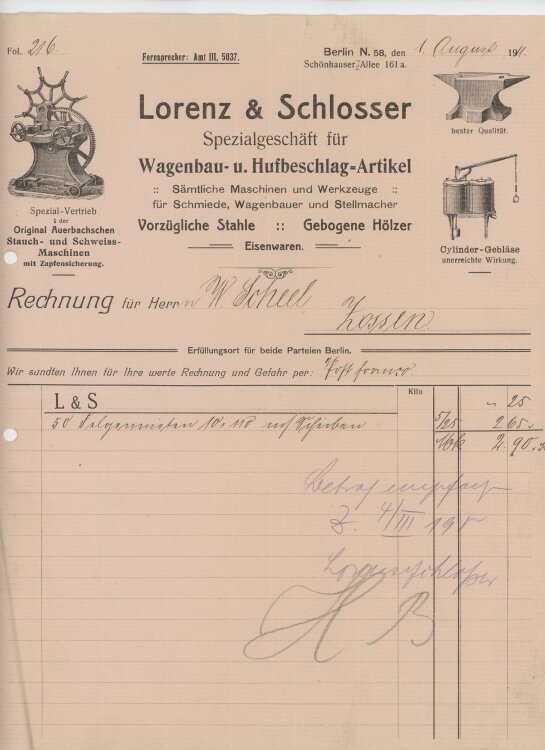 Fol. 216.
Fernsprecher: Amt III, 5037.
Berlin N. 58, den 1. August 1911.
Schönhauser-Allee 161 a.
Lorenz & Schlosser
Spezialgeschäft für
Wagenbau- u. Hufbeschlag-Artikel
:: Sämtliche Maschinen und Werkzeuge ::
für Schmiede, Wagenbauer und Stellmacher
Vorzügliche Stahle :: Gebogene Hölzer
Eisenwaren.
Spezial-Vertrieb
der
Original Auerbachschen
Stauch- und Schweiss-
Maschinen
mit Zapfensicherung.
bester Qualität.
Cylinder-Gebläse
unerreichte Wirkung.
Rechnung für Herrn W. Scheel
Zossen
Erfüllungsort für beide Parteien Berlin.
Wir sandten Ihnen für Ihre werte Rechnung und Gefahr per: Post franco
Kilo
L & S
25
50 Felgennieten 10 × 110 m/ Scheiben 5/25 2 65.
Mk 2.90.
Betrag empfangen
Lorenz & Schlosser
H B